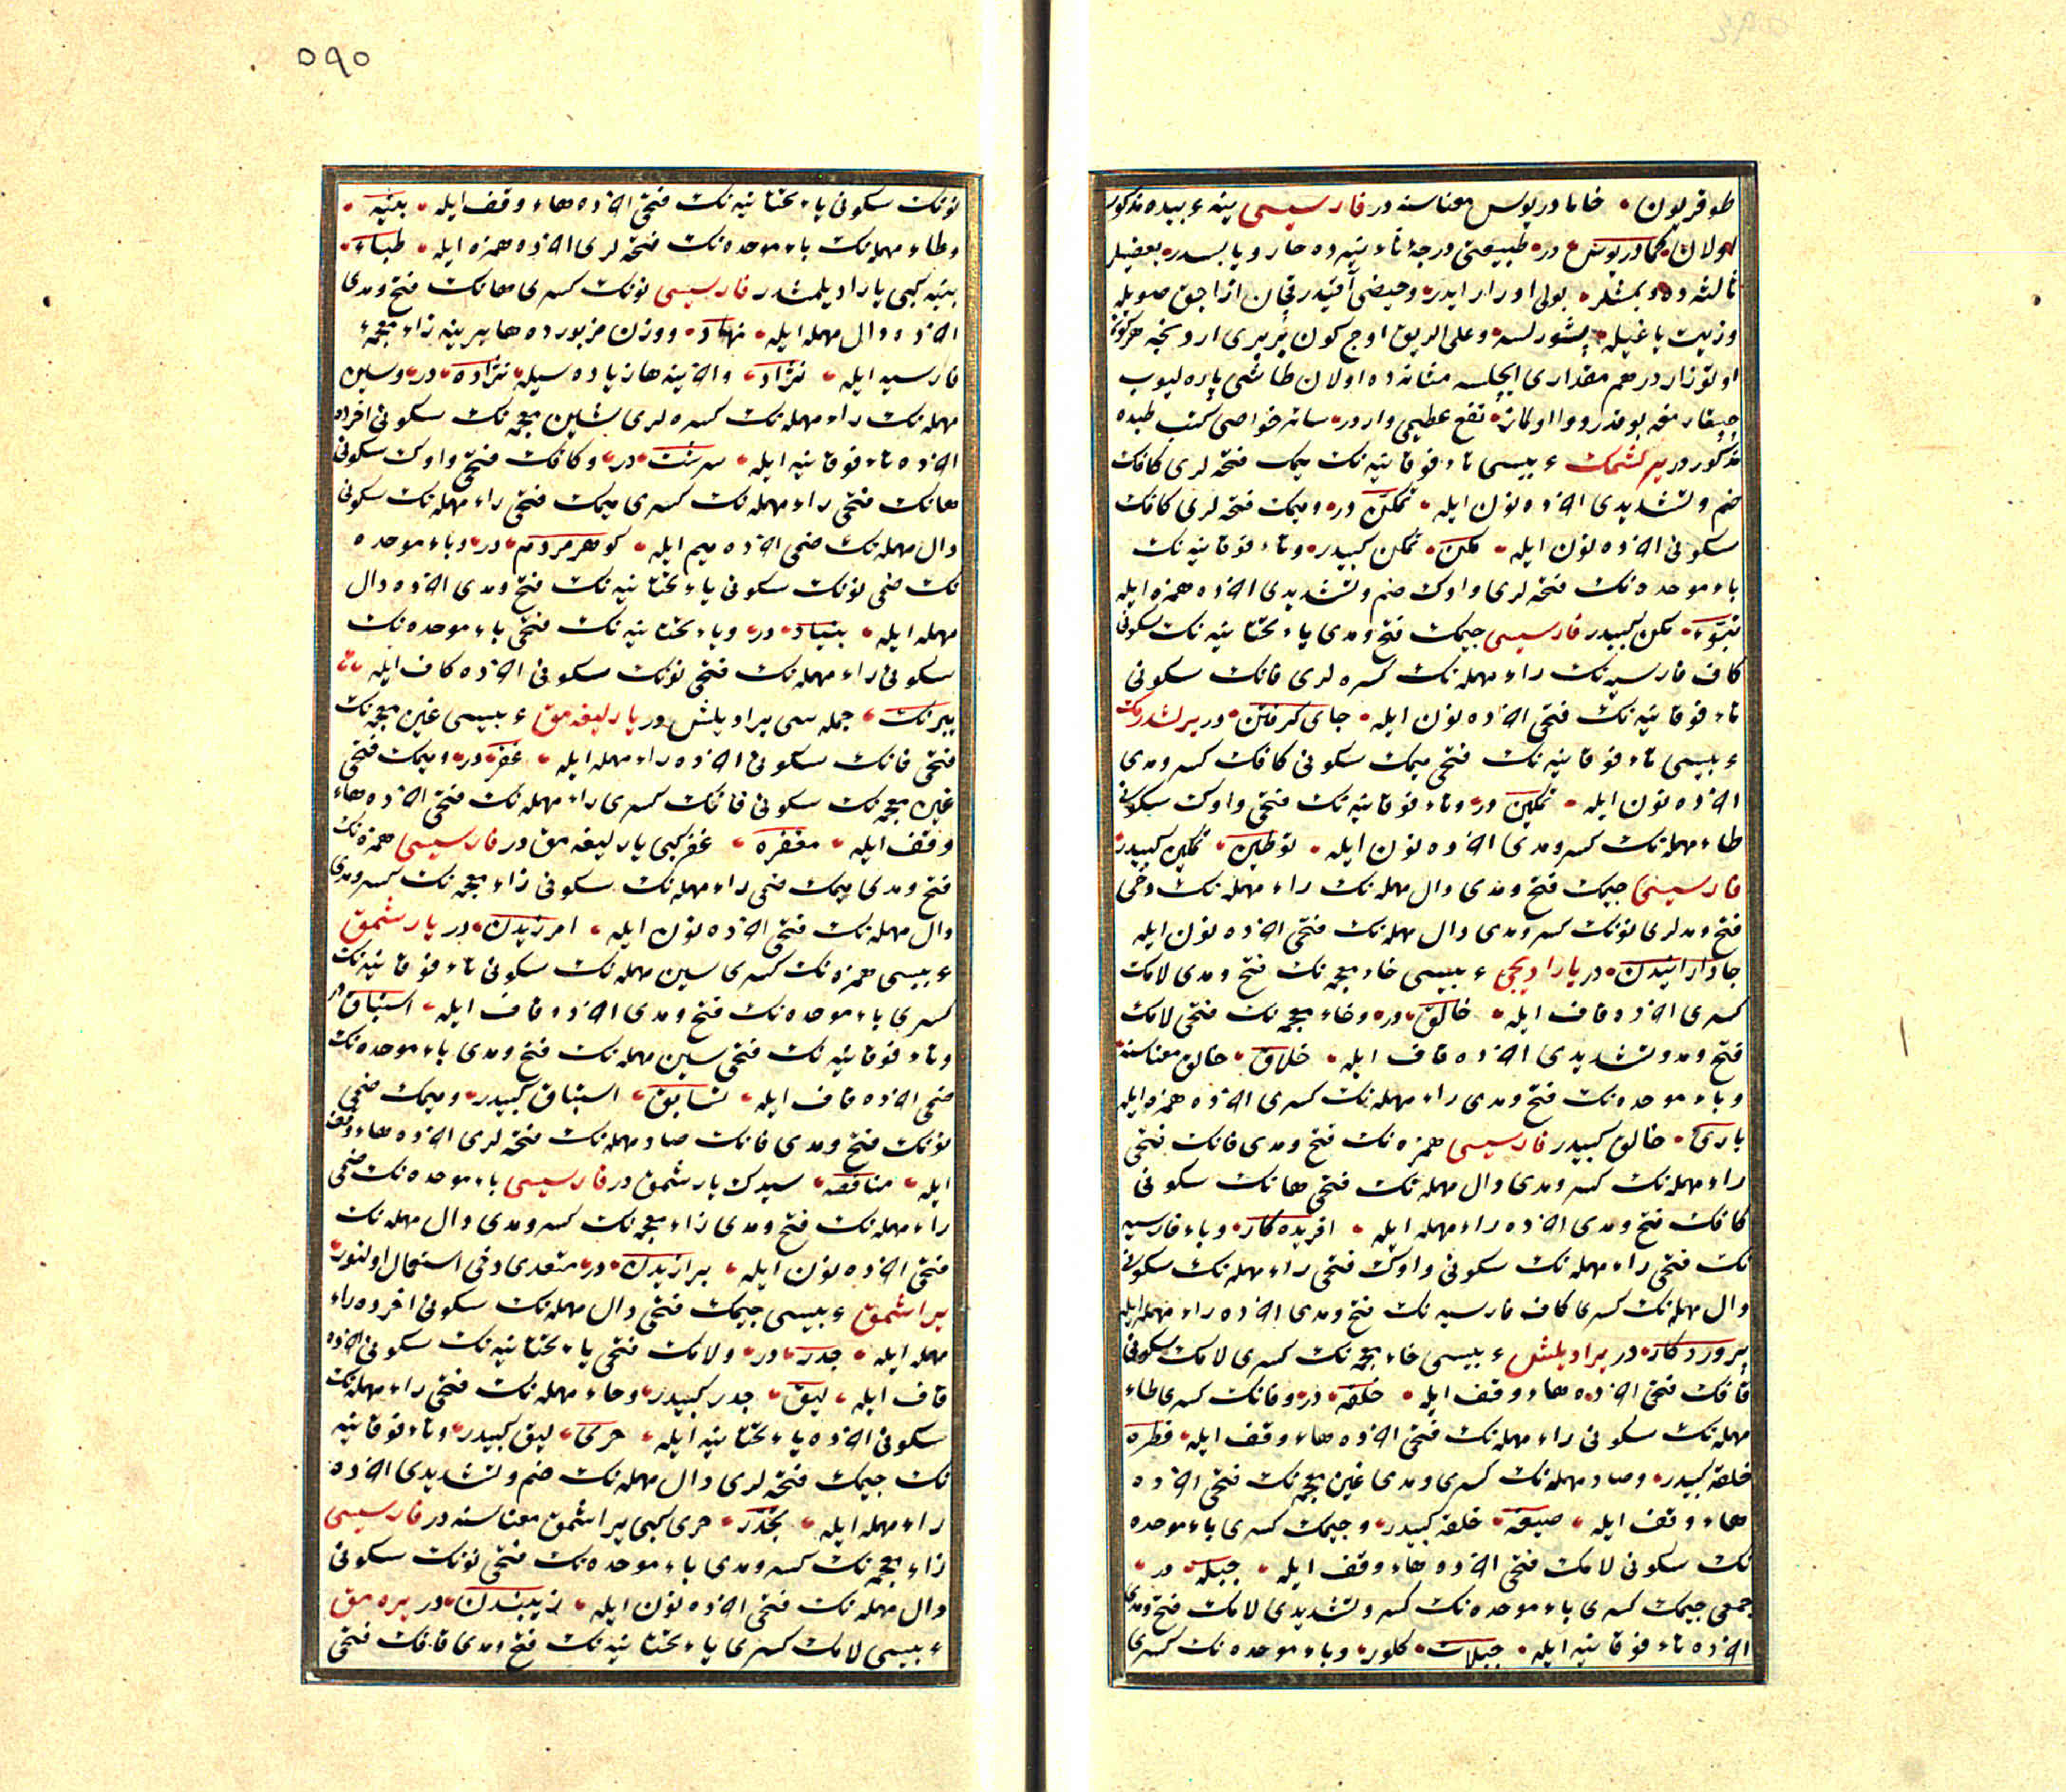 طوقریون خامادریوس معناسنه در فارسیسی ینه عربیده مذکور
اولان کمادریوس در طبیعتی درجۀ ثانیه ده حار و یابسدر بعضیلر
ثالثه ده دیمشلر بولی ادرار ایدر وحیضی آقیدر
وزیت یاغیله وعلی الریق اوج کون بربری اردنجه
اوتوز درهم مقداری ایچلسه مثانه ده اولان طاشی پاره لیوب
چیقارمغه نفع عظیمی واردر سائر خواصی کتب طبده
مذکوردر یرلشمک عربیسی تاء فوقانیه نک میمک فتحه لری کافک
ضم وتشدیدی آخرده نون ایله تمکن در ومیمک فتحه لری کافک
سکونی آخرده نون ایله مکن تمکن کبیدر وتاء فوقانیه نک
باء موحده نک فتحه لری واوک ضم وتشدیدی آخرده همزه ایله
تبوء مکن کبیدر فارسیسی جیمک فتح ومدی یاء تحتانیه نک سکونی
کاف فارسیه نک راء مهمله نک کسره لری فانک سکونی
تاء فوقانیه نک فتحی آخرده نون ایله جای گرفتن در یرلشدرمک
عربیسی تاء فوقانیه نک فتحی میمک سکونی کافک کسر ومدی
آخرده نون ایله تمکین در وتاء فوقانیه نک فتحی واوک سکونی
طاء مهمله نک کسر ومدی آخرده نون ایله توطین تمکین کبیدر
فارسیسی جیمک فتح ومدی دال مهمله نک راء مهمله نک دخی
فتح ومدلری نونک کسر ومدی دال مهمله نک فتحی آخرده نون ایله
جادارانیدن در یارادیجی عربیسی خاء معجمه نک فتح ومدی لامک
کسری آخرده قاف ایله خالق در وخاء معجمه نک فتحی لامک
فتح ومد وتشدیدی آخرده قاف ایله خلاق خالق معناسنه
وباء موحده نک فتح ومدی راء مهمله نک کسری آخرده همزه ایله
بارئ خالق کبیدر فارسیسی همزه نک فتح ومدی فانک فتحی
راء مهمله نک کسر ومدی دال مهمله نک فتحی هانک سکونی
کافک فتح ومدی آخرده راء مهمله ایله افریده کار وباء فارسیه
نک فتحی راء مهمله نک سکونی واوک فتحی راء مهمله نک سکونی
دال مهمله نک کسری کاف فارسیه نک فتح ومدی آخرده راء مهمله ایله
پروردکار در یرادیلش عربیسی خاء معجمه نک کسری لامک سکونی
قافک فتحی آخرده هاء وقف ایله خلقه در وفانک کسری طاء
مهمله نک سکونی راء مهمله نک فتحی آخرده هاء وقف ایله فطره
خلقه کبیدر وصاد مهمله نک کسری ومدی غین معجمه نک فتحی آخرده
هاء وقف ایله صیغه خلقه کبیدر وجیمک کسری باء موحده
نک سکونی لامک فتحی آخرده هاء وقف ایله جبله در
جمعی جیمک کسری باء موحده نک کسر وتشدیدی لامک فتح ومدی
آخرده تاء فوقانیه ایله جبلات کلور وباء موحده نک کسری
٥٩٠
نونک سکونی یاء تحتانیه نک فتحی آخرده هاء وقف ایله بنیه
وطاء مهمله نک باء موحده نک فتحه لری آخرده همزه ایله طباء
بنیه کبی یارادیلمشدر فارسیسی نونک کسری هانک فتح ومدی
آخرده دال مهمله ایله نهاد ووزن مزبورده ها یرینه زاء معجمه
فارسیه ایله نژاد وآخرینه ها زیاده سیله نژاده در وسین
مهمله نک راء مهمله نک کسره لری شین معجمه نک سکونی آخرده
آخرده تاء فوقانیه ایله سرشت در وکافک فتحی واوک سکونی
هانک فتحی راء مهمله نک کسری میمک فتحی راء مهمله نک سکونی
دال مهمله نک ضمی آخرده میم ایله کوهرمردم در وباء موحده
نک ضمی نونک سکونی یاء تحتانیه نک فتح ومدی آخرده دال
مهمله ایله بنیاد در ویاء تحتانیه نک فتحی باء موحده نک
سکونی راء مهمله نک فتحی نونک سکونی آخرده کاف ایله
یبرنک جمله سی یرادیلش در یارلیغه مق عربیسی غین معجمه نک
فتحی فانک سکونی آخرده راء مهمله ایله غفر در ومیمک فتحی
غین معجمه نک سکونی فانک کسری راء مهمله نک فتحی آخرده هاء
وقف ایله مغفره غفر کبی یارلیغه مق در فارسیسی همزه نک
فتح ومدی میمک ضمی راء مهمله نک سکونی زاء معجمه نک کسر ومدی
دال مهمله نک فتحی آخرده نون ایله امرزیدن در یارشمق
عربیسی همزه نک کسری سین مهمله نک سکونی تاء فوقانیه نک
کسری باء موحده نک فتح ومدی آخرده قاف ایله استباق در
وتاء فوقانیه نک فتحی سین مهمله نک فتح ومدی باء موحده نک
ضمی آخرده قاف ایله تسابق استباق کبیدر ومیمک ضمی
نونک فتح ومدی فانک صاد مهمله نک فتحه لری آخرده هاء وقف
ایله مناقصه سیدک یارشمق در فارسیسی باء موحده نک ضمی
راء مهمله نک فتح ومدی زاء معجمه نک کسر ومدی دال مهمله نک
فتحی آخرده نون ایله برازیدن در متعدی دخی استعمال اولنور
یراشمق عربیسی جیمک فتحی دال مهمله نک سکونی آخرده راء
مهمله ایله جدر در ولامک فتحی یاء تحتانیه نک سکونی آخرده
قاف ایله لیق جدر کبیدر وحاء مهمله نک فتحی راء مهمله نک
سکونی آخرده یاء تحتانیه ایله حری لیق کبیدر وتاء فوقانیه
نک جیمک فتحه لری دال مهمله نک ضم وتشدیدی آخرده
راء مهمله ایله تجدر حری کبی یراشمق معناسنه در فارسیسی
زاء معجمه نک کسر ومدی باء موحده نک فتحی نونک سکونی
دال مهمله نک فتحی آخرده نون ایله زیبندن در یره مق
عربیسی لامک کسری یاء تحتانیه نک فتح ومدی قافک فتحی